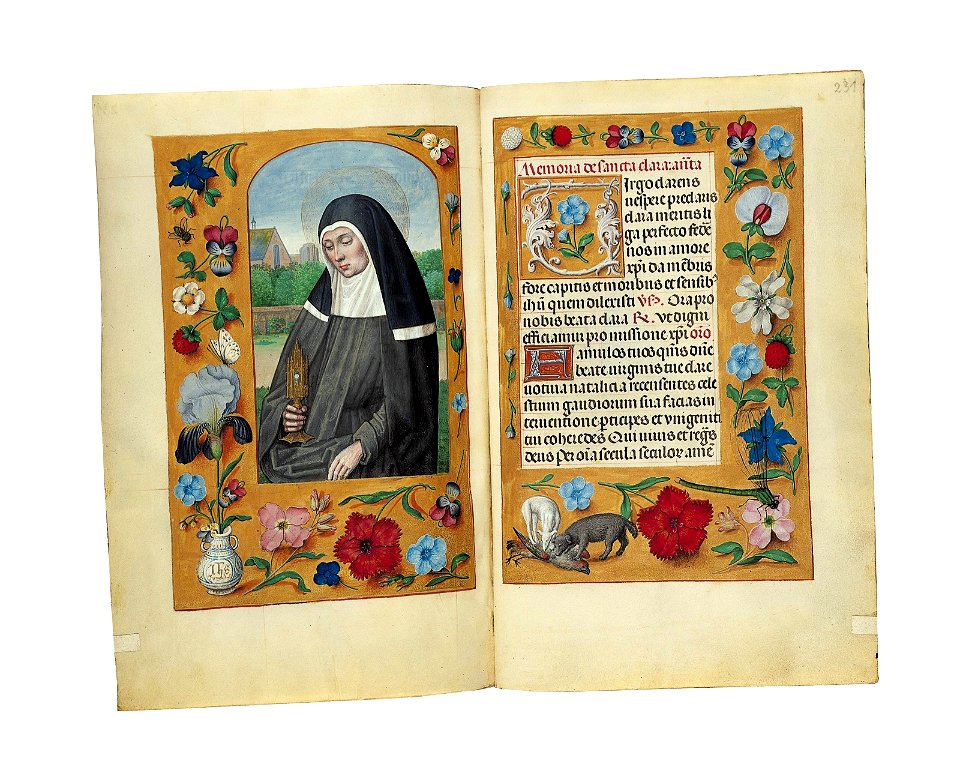 231
ihs
Memoria de sancta clara: añta
Virgo clarens
vespere preclaris
clara meritis li
ga perfecto fede
nos in amore
xp̄i da mēbris
fore capitis et moribus et sensib
ihū quem dilexisti Vs. Ora pro
nobis beata clara R. Vt digni
efficiamur promissione xp̄i oīo
Famulos tuos qūs dn̄e
beate virginis tue clare
votiua natalicia recensentes cele
stium gaudiorum sua facias in
teruentione p̱ticipes et vnigeniti
tui coheredes Qui viuis et regn̄s
deus Per oīa secula seculor amē